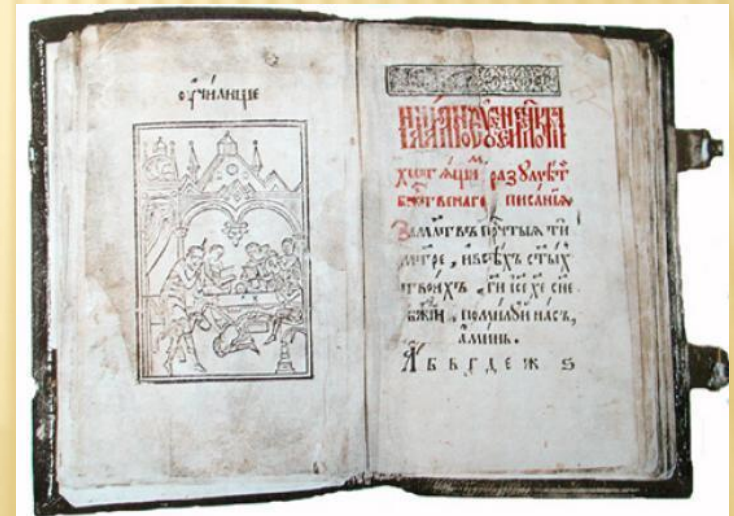 ѹчи́лище
хотѧ́щиⷨ разꙋмѣ́т
бж҃твенаго писа́нїѧ
За мл҃твъ прⷱ҇тыѧ ти
мт҃ре, и всѣ́хъ ст҃ы́хъ
твои́хъ, гⷭ҇и і҆с҃е хе҃ сн҃е
бж҃їи, поми́лꙋй на́съ,
а҆ми́нь.
А б в г д е ж ѕ